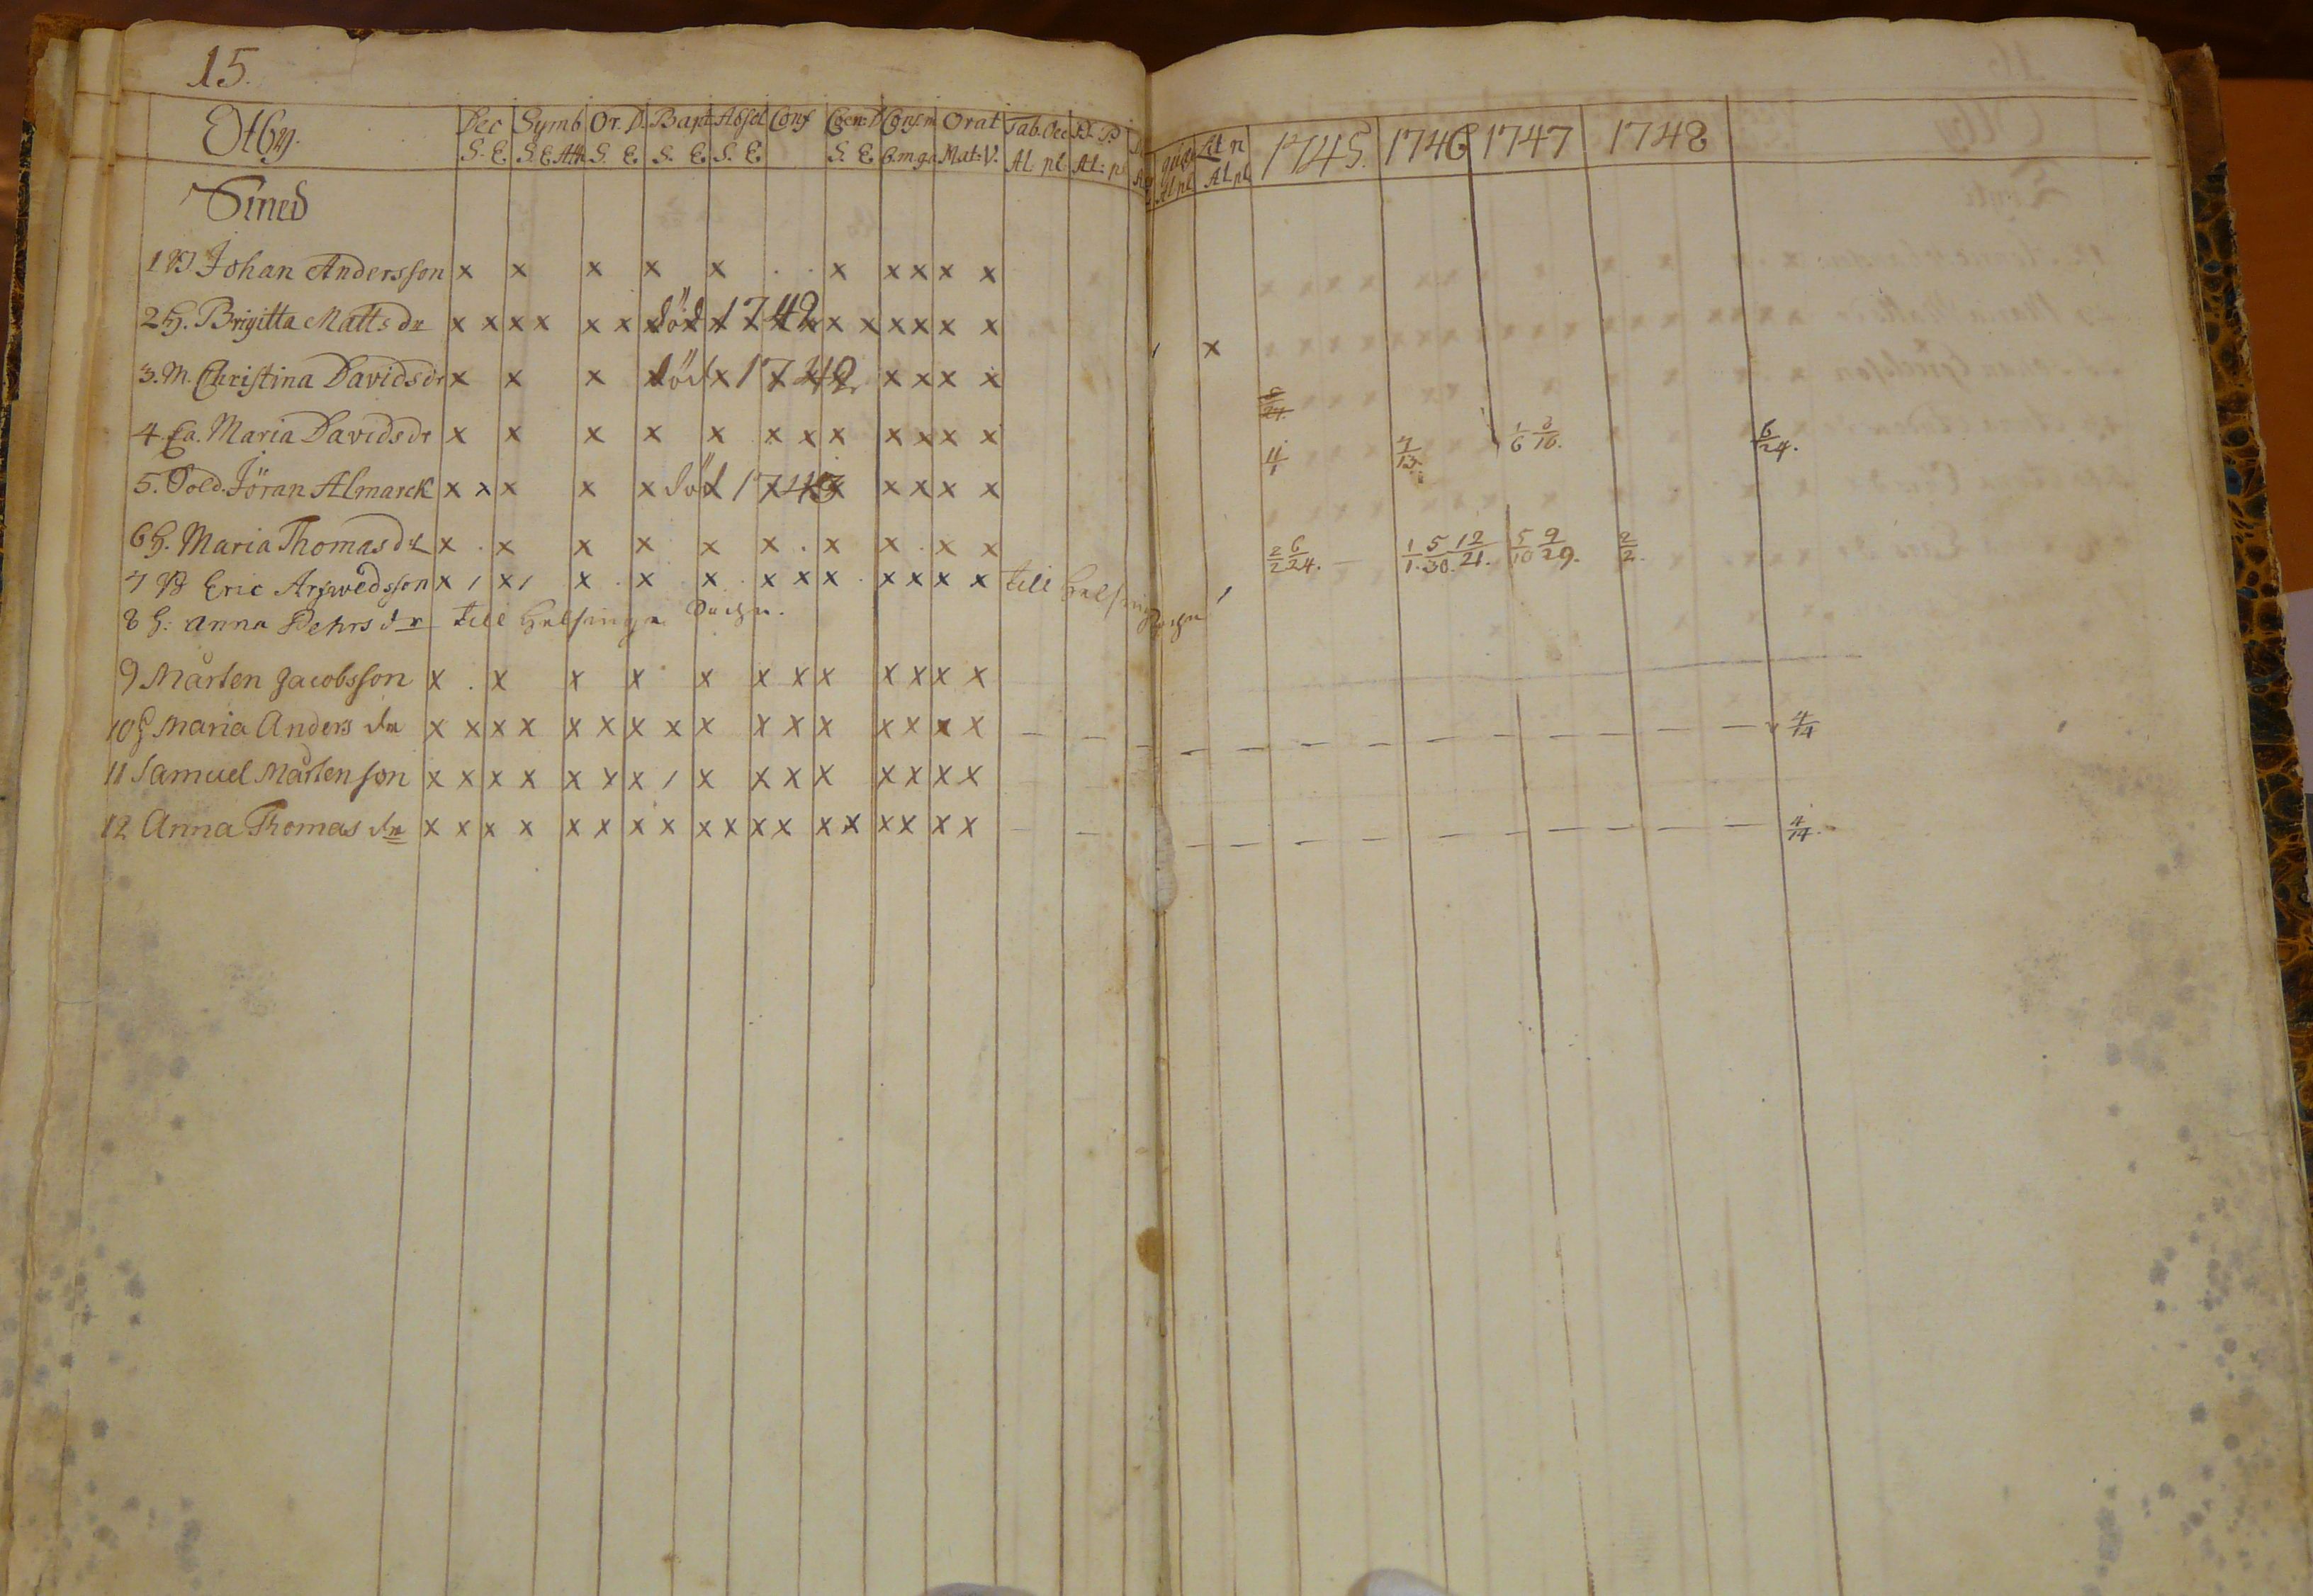 15.
Otby. Dec Symb Or. D. Bapt Absol Conf Coen: D Consc. m Orat Tab. Oec 1745. 1746 1747 1748
S. E. S. E. Ath S. E. S. E. S. E. S. E. Mat: V. Al. pl. Al: pl Al pl Al pl
Sined
1 Johan Andersson x x x x x . . x x x x x
2 H. Brigitta Matts dr x x x x x x död 1742 x x x x x x
3. M. Christina Davids dr x x x död 1742 x x x x x
4. Ea. Maria Davids dr x x x x x x x x x x x x 11/1 7/13. 1/6 8/16. 6/24.
5. Sold. Jöran Almarck x x x x x död 1743 x x x x
6 H. Maria Thomas dr x . x x x x x . x x . x x 2/2 6/24. 1/1. 5/30. 12/21. 5/10 9/29. 2/2.
7 Eric Arfwedsson x / x / x . x . x . x x x . x x x x till Helsing
8 H: Anna Pehrs dr till Helsinge
9 Mårten Jacobsson x . x x x x x x x x x x x
10 H Maria Anders dr x x x x x x x x x x x x x x x x 4/14
11 Samuel Mårtenson x x x x x x x / x x x x x x x x
12 Anna Thomas dr x x x x x x x x x x x x x x x x x x 4/14.